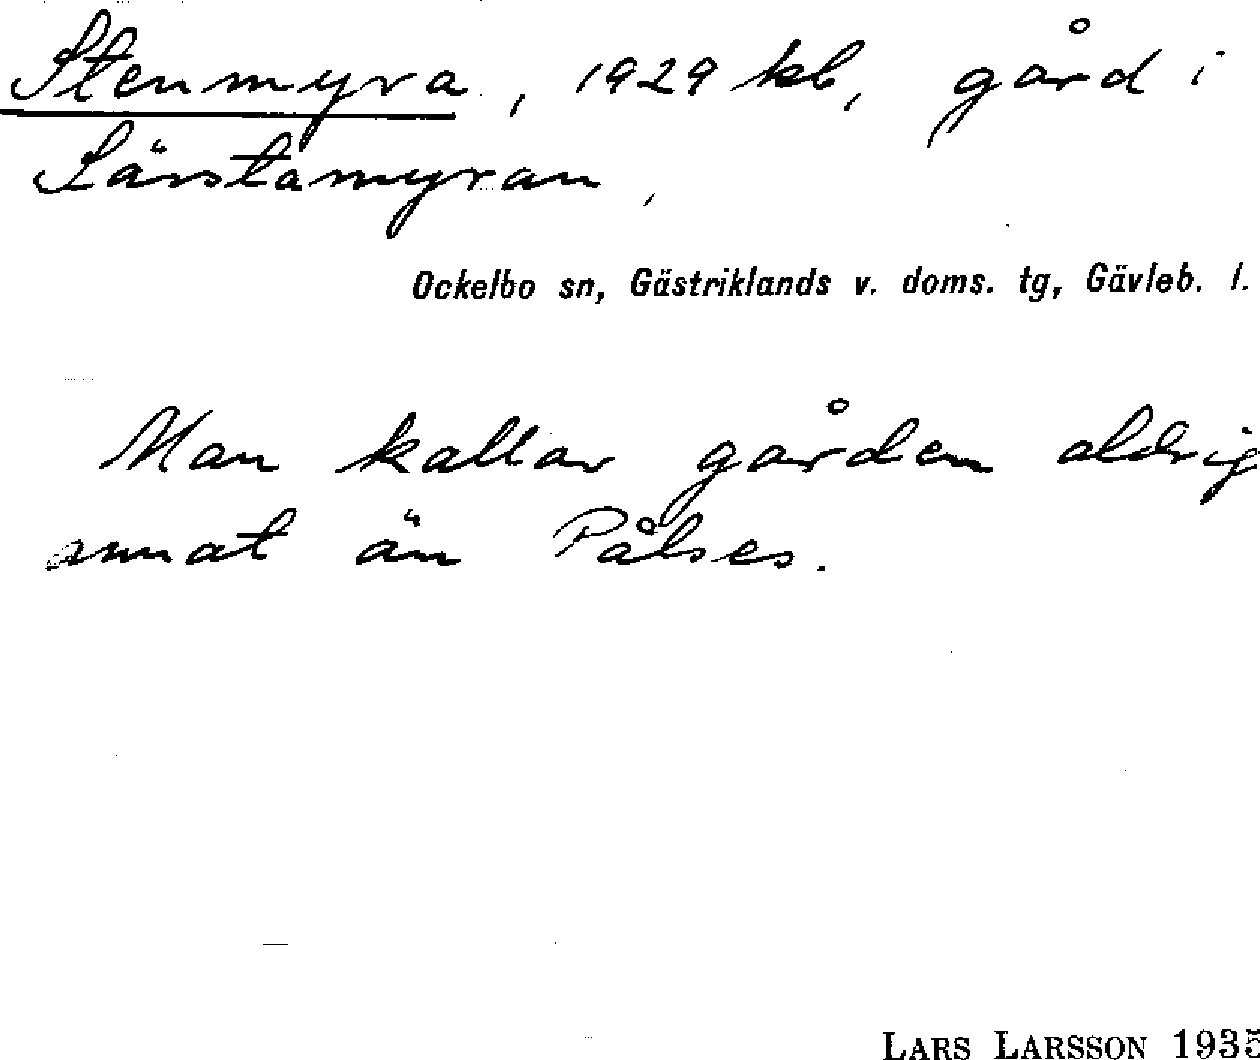 Stenmyra, 1929 kb, gård i
Särstamyran,
Ockelbo sn, Gästriklands v. doms. tg, Gävleb. l.
Man kallar gården aldrig
annat än Pålses.
LARS LARSSON 1935